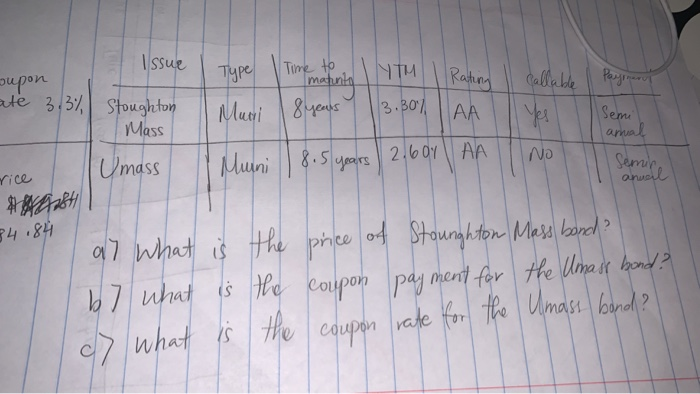 Issue Type Time to maturity YTM Rating Callable
oupon ate 3.3% Stoughton Mass Muni 8 years 3.30% AA Yes Semi anual
rice 34.84 Umass Muni 8.5 years 2.60% AA NO Semi anual
a) What is the price of Stounghton Mass bond?
b) What is the coupon payment for the Umass bond?
c) What is the coupon rate for the Umass bond?